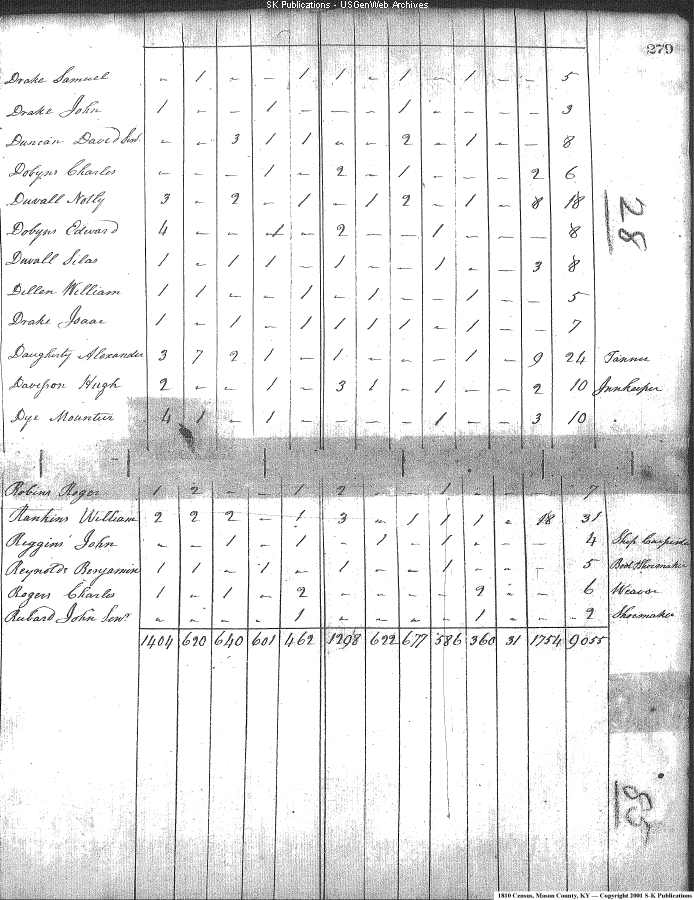 SK Publications - USGenWeb Archives
279
Drake Samuel - 1 - - 1 1 - 1 - 1 - - 5
Drake John 1 - - 1 - - - 1 - - - - 3
Duncan David Senr. - - 3 1 1 - - 2 - 1 - - 8
Dobyns Charles - - - 1 - 2 - 1 - - - 2 6
Duvall Notly 3 - 2 - 1 - 1 2 - 1 - 8 18
28
Dobyns Edward 4 - - 1 - 2 - - 1 - - - 8
Duvall Silas 1 - 1 1 - 1 - - 1 - - 3 8
Dillen William 1 1 - - 1 - 1 - - 1 - - 5
Drake Isaac 1 - 1 - 1 1 1 1 - 1 - - 7
Daugherty Alexander 3 7 2 1 - 1 - - - 1 - 9 24 Tanner
Davisson Hugh 2 - - 1 - 3 1 - 1 - - 2 10 Innkeeper
Dye Mountier 4 1 - 1 - - - - 1 - - 3 10
Robins Roger 1 2 - - 1 2 - - 1 - - - 7
Rankins William 2 2 2 - 1 3 - 1 1 1 - 18 31
Riggins John - - 1 - 1 - 1 - 1 - - - 4 Ship Carpenter
Reynolds Benjamin 1 1 - 1 - 1 - - 1 - - - 5 Boot Shoemaker
Rogers Charles 1 - 1 - 2 - - - - 2 - - 6 Weaver
Rubard John Senr. - - - - 1 - - - - 1 - - 2 Shoemaker
1404 620 640 601 462 1298 622 677 586 360 31 1754 9055
55
1810 Census, Mason County, KY — Copyright 2001 S-K Publications